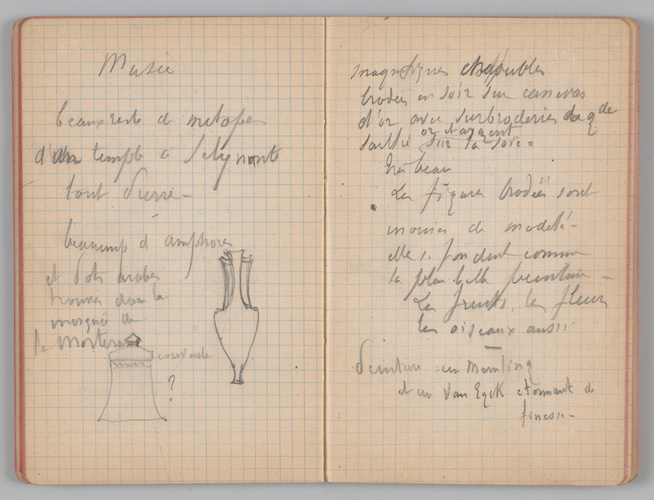 Musée
beaux reste de metopes
d'un temple a Selynonte
tout Pierre -
beaucoup d'amphores
et Pots arabes
trouvés dans la
de
la
?
magnifiques chasubles
brodées en soir sur canevas
d'or avec surbroderies de qde
saillie or et argent sur la soie =
très beau
Les figures brodées sont
inouies de modelé -
elles se fondent comme
la plus belle peinture -
Les fruits, les fleurs
les oiseaux aussi -
Peinture - un Memling
et un Van Eyck etonnant de
finesse -